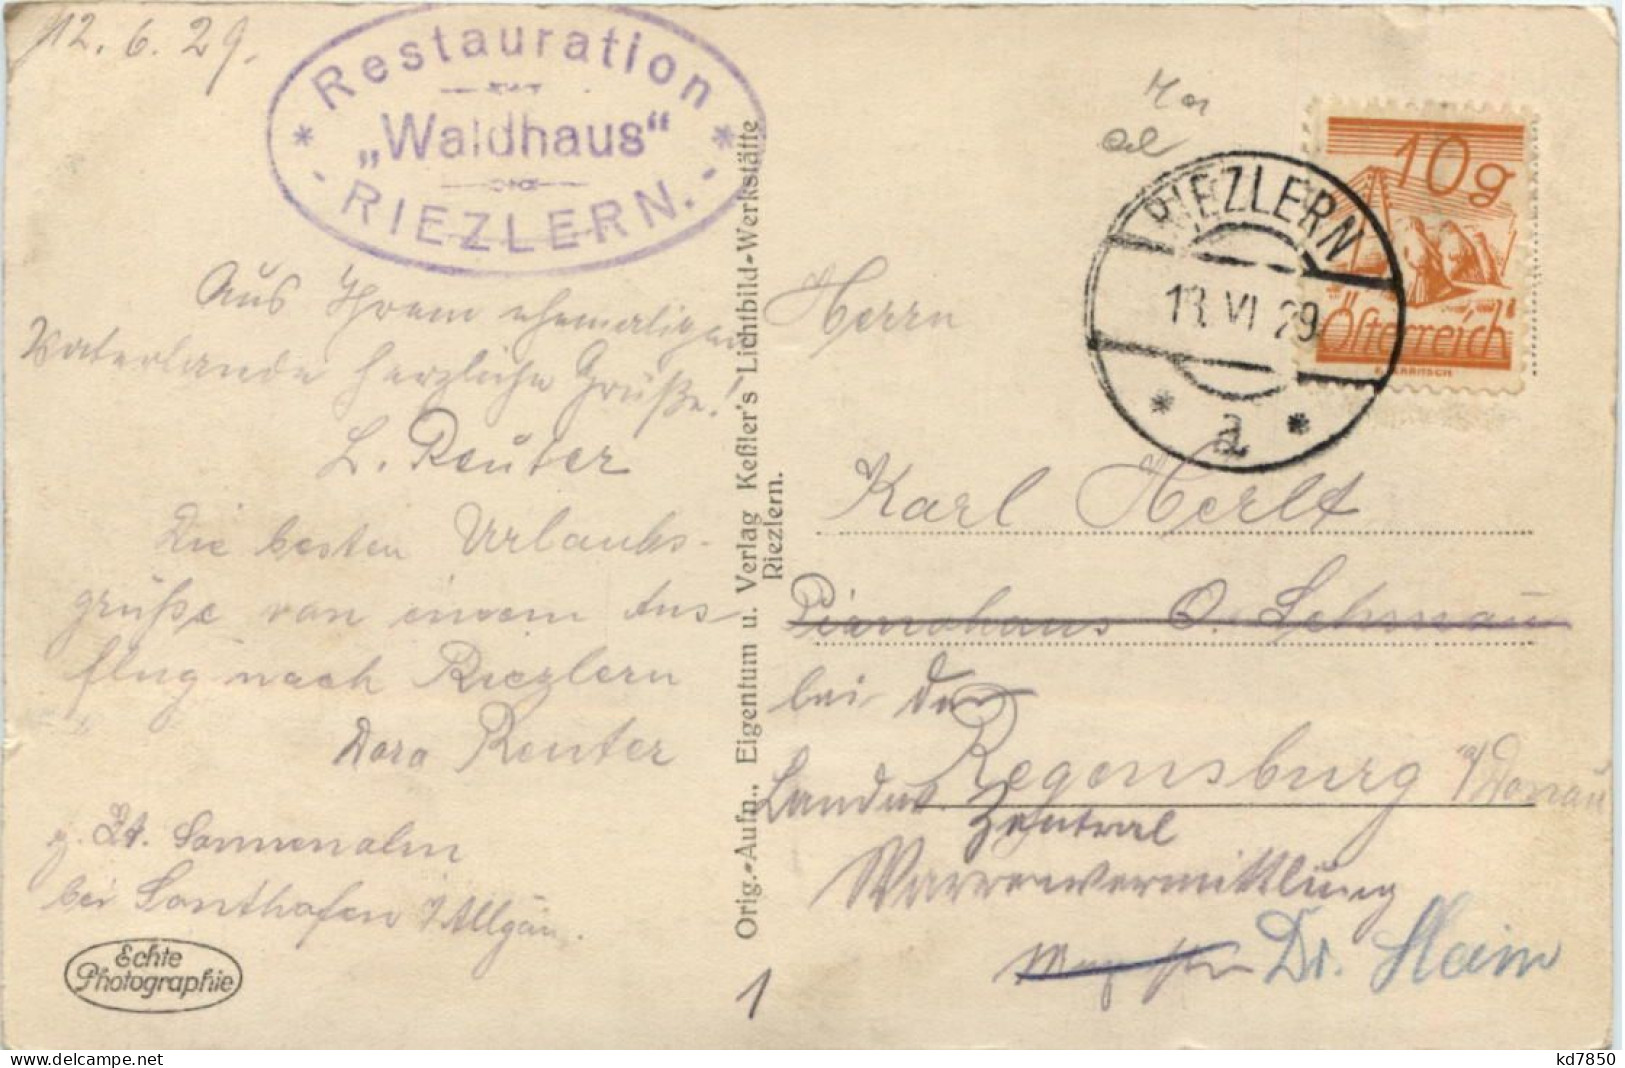 12. 6. 29.
Restauration
„Waldhaus“
RIEZLERN.
Aus Ihrem ehemaligen
Vaterlande herzliche Grüße!
L. Reuter
Die besten Urlaubs-
grüße von einem Aus
flug nach Riezlern
Dora Reuter
z. Zt. Sonnenalm
bei Sonthofen i/Allgäu.
Echte
Photographie
Orig.-Aufn., Eigentum u. Verlag Keßler's Lichtbild-Werkstätte
Riezlern.
RIEZLERN
13. VI 29
a
10g
Österreich
Herrn
Karl Herlt
Pianohaus O. Schmau
bei der
Regensburg a/Donau
Landes Zentral
Warenvermittlung
Dr.
1
kd7850